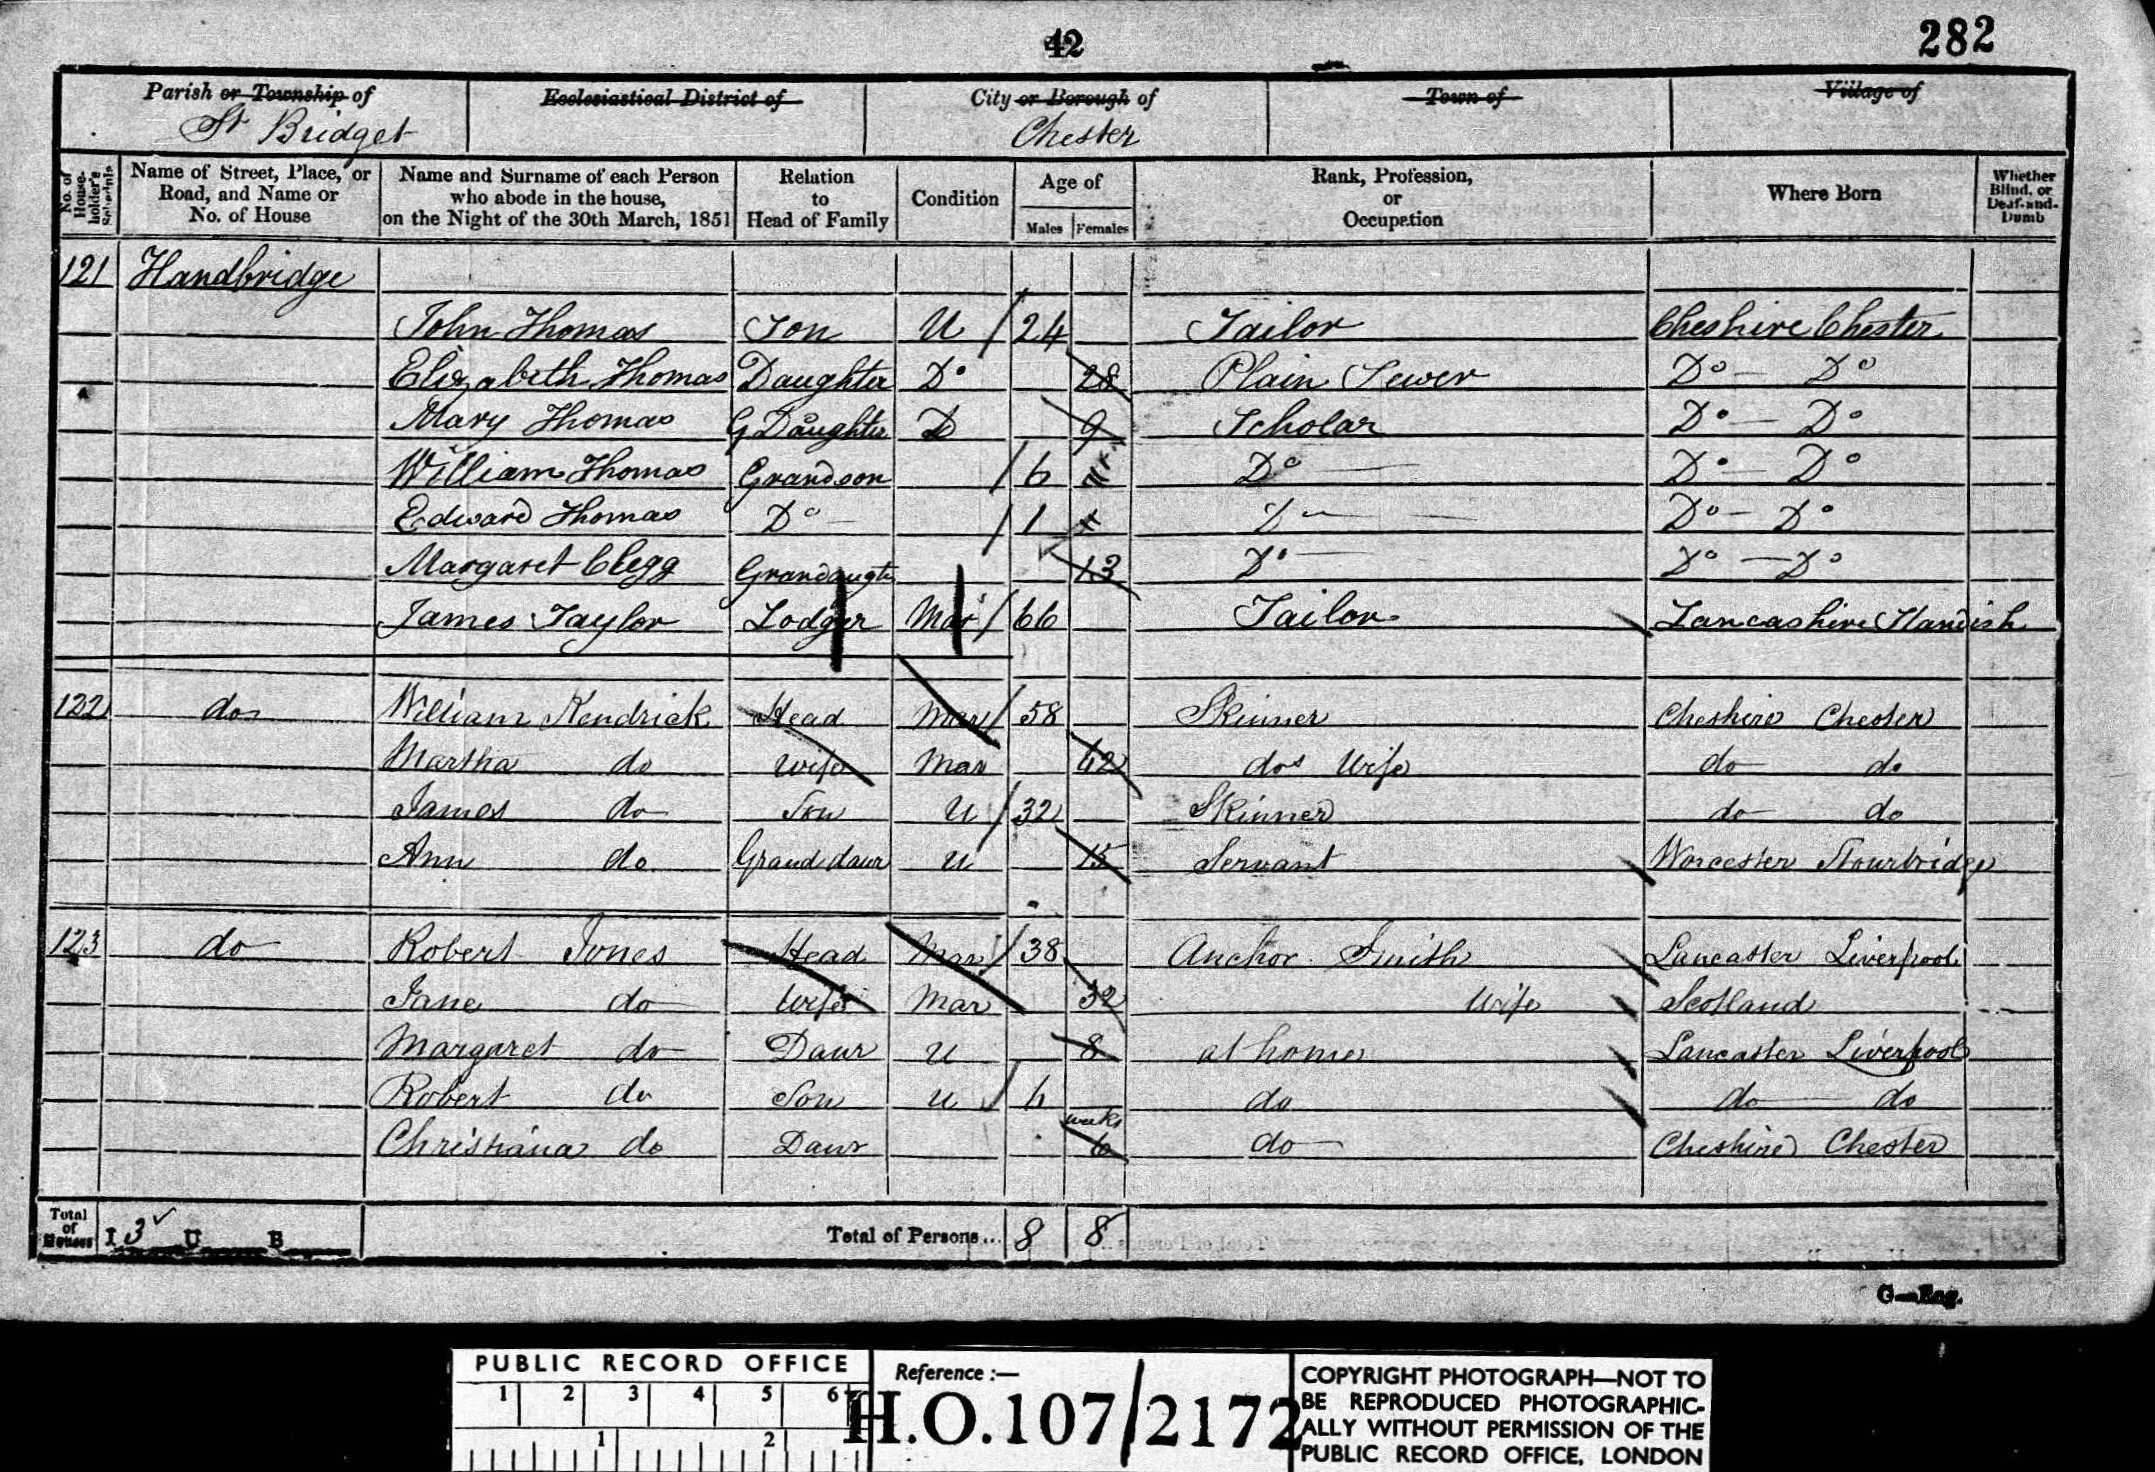 42
282
Parish or Township of
St Bridget
Ecclesiastical District of
City or Borough of
Chester
Town of
Village of
No. of House-holder's Schedule
Name of Street, Place, or Road, and Name or No. of House
Name and Surname of each Person who abode in the house, on the Night of the 30th March, 1851
Relation to Head of Family
Condition
Age of
Males Females
Rank, Profession, or Occupation
Where Born
Whether Blind, or Deaf-and-Dumb
121 Handbridge
John Thomas Son U 24 Tailor Cheshire Chester
Elizabeth Thomas Daughter Do 28 Plain Sewer Do Do
Mary Thomas G Daughter D 9 Scholar Do Do
William Thomas Grandson 6 Do Do Do
Edward Thomas Do 1 Do Do Do
Margaret Clegg Grandaugtr 13 Do Do Do
James Taylor Lodger Mar 66 Tailor Lancashire
122 do William Kendrick Head Mar 58 Skinner Cheshire Chester
Martha do Wife Mar 42 dos Wife do do
James do Son U 32 Skinner do do
Ann do Grand daur U 15 Servant Worcester Stourbridge
123 do Robert Jones Head Mar 38 Anchor Smith Lancaster Liverpool
Jane do Wife Mar 32 Wife Scotland
Margaret do Daur U 8 at home Lancaster Liverpool
Robert do Son U 6 do do do
Christiana do Daur weeks 6 do Cheshire Chester
Total of Houses I 3 U B Total of Persons... 8 8
G—Eng.
PUBLIC RECORD OFFICE
1 2 3 4 5 6
1 2
Reference :—
H.O.107/2172
COPYRIGHT PHOTOGRAPH—NOT TO
BE REPRODUCED PHOTOGRAPHIC-
ALLY WITHOUT PERMISSION OF THE
PUBLIC RECORD OFFICE, LONDON